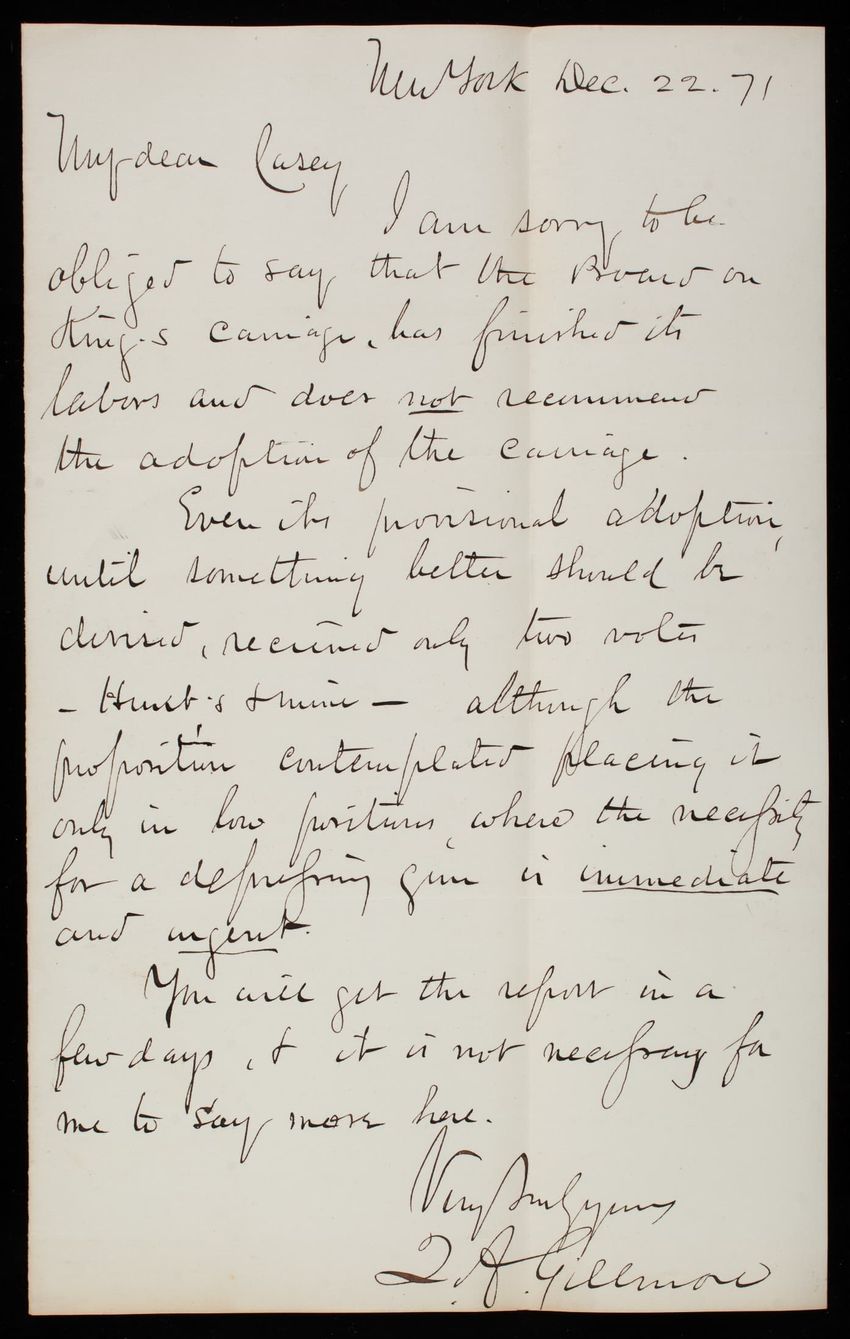 New York Dec. 22. 71
My dear Casey,
I am sorry to be
obliged to say that the Board on
King's carriage, has finished its
labors and does not recommend
the adoption of the carriage.
Even its provisional adoption,
until something better should be
devised, received only two votes
- Hunt's & mine - although the
proposition contemplated placing it
only in low positions, where the necessity
for a depressing gun is immediate
and urgent.
You will get the report in a
few days, & it is not necessary for
me to say more here.
Very truly yours
Q. A. Gillmore